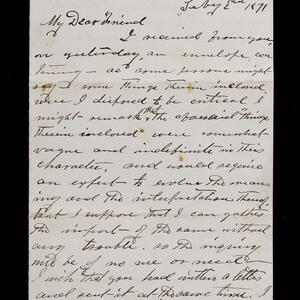 Feby 2nd 1871
My Dear Friend
I received from you,
on yesterday, an envelope con
taining — as some persons might
say — some things therein inclosed.
were I disposed to be critical I
might remark that the aforesaid things
therein inclosed were somewhat
vague and indefinite in their
character, and would require
an expert to evolve the mean
ing and the interpretation thereof
but I suppose that I can gather
the import of the same without
any trouble. so the inquiry
will be of no use or need—
I wish that you had written a letter
and sent it at the same time. I